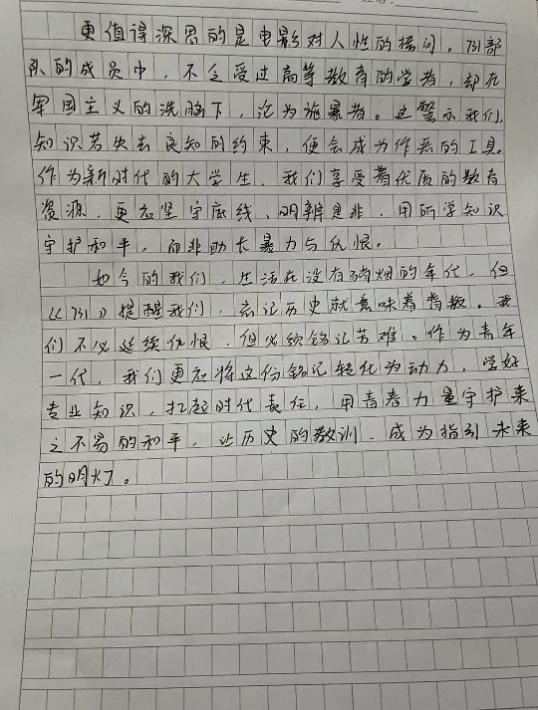 更值得深思的是电影对人性的拷问。731部
队的成员中，不乏受过高等教育的学者，却在
军国主义的洗脑下，沦为施暴者。这警示我们，
知识若失去良知的约束，便会成为作恶的工具。
作为新时代的大学生，我们享受着优质的教育
资源，更应坚守底线、明辨是非，用所学知识
守护和平，而非助长暴力与仇恨。
如今的我们，生活在没有硝烟的年代，但
《731》提醒我们，忘记历史就意味着背叛。我
们不必延续仇恨，但必须铭记苦难。作为青年
一代，我们更应将这份铭记转化为动力，学好
专业知识，扛起时代责任，用青春力量守护来
之不易的和平，让历史的教训，成为指引未来
的明灯。